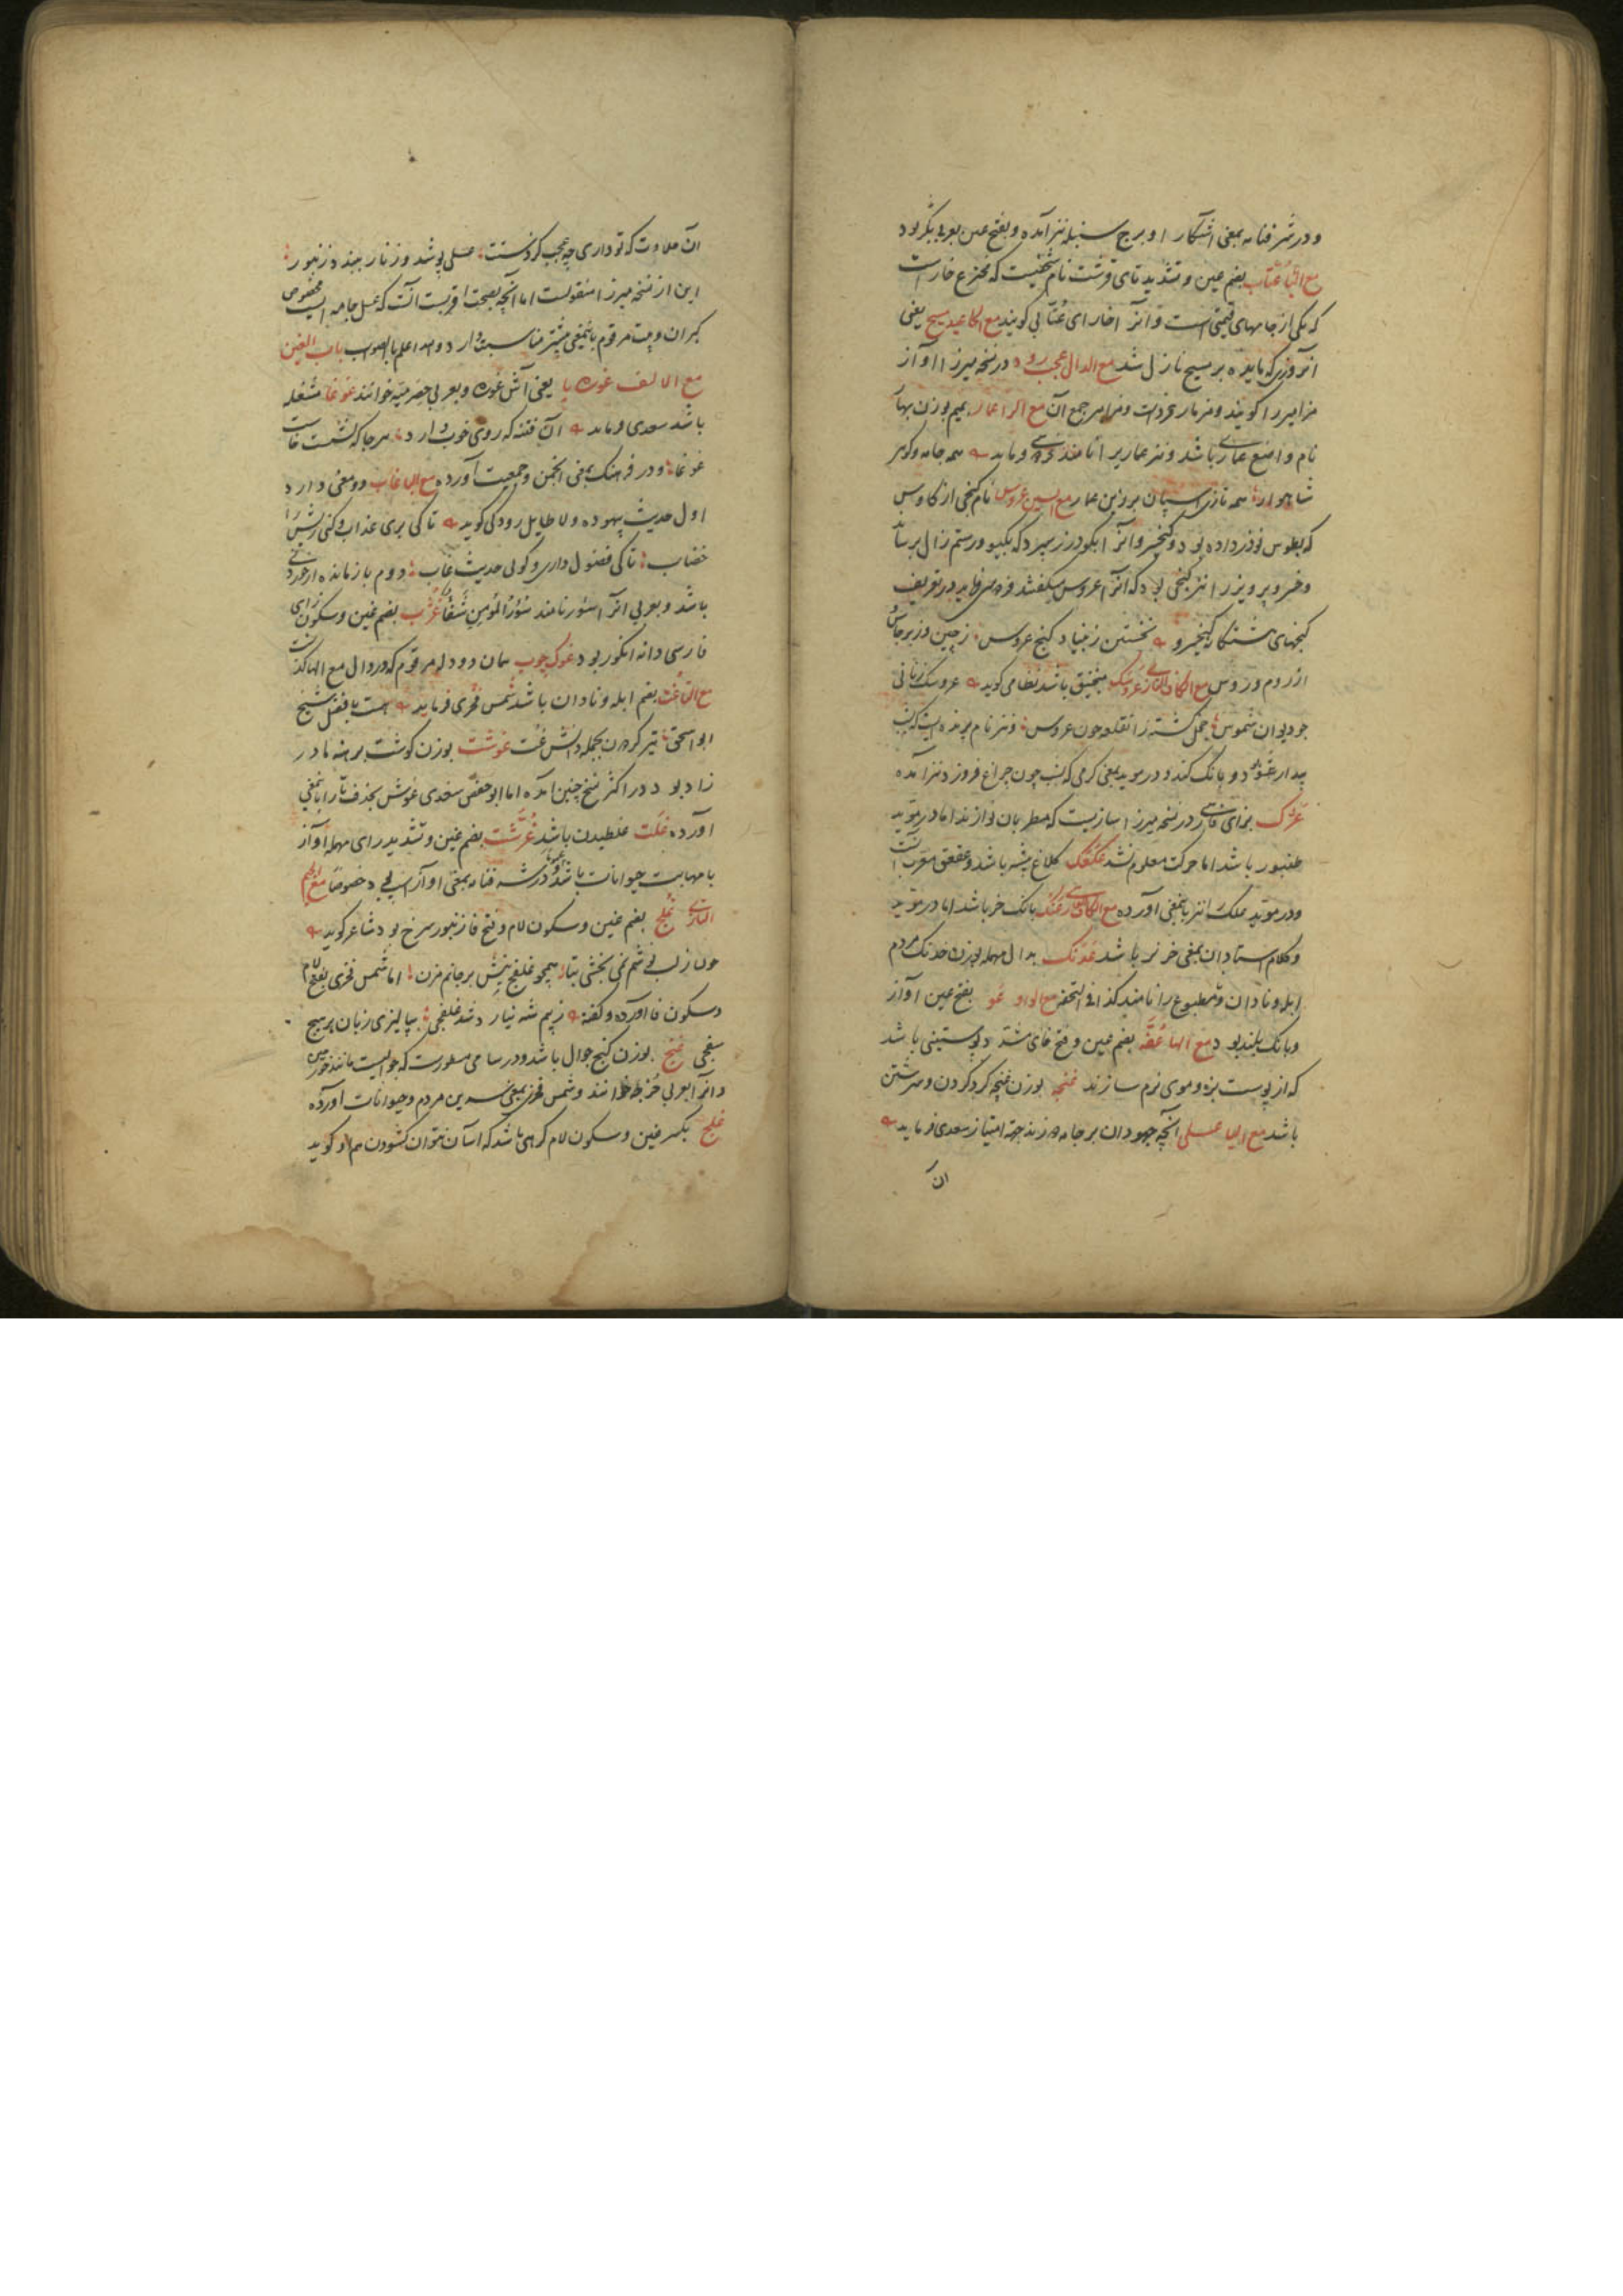 و در شرفنامه بمعنی آشکارا و برج سنبله نیز آمده و بفتح عین بوی دیگر بود
مع التا عتاب بضم عین و تشدید تای قرشت نام شخصیست که مخترع خاراست
که یکی از جامهای قیمتی است و آنرا خارای عتابی گویند مع الحا عید مسیح یعنی
آنروزی که مایده بر مسیح نازل شد مع الدال عجب رود در نسخه میرزا آواز
مزامیر را گویند و مزمار مفردست و مزامیر جمع آن مع الرا عمار بمیم بوزن بهار
نام واضع عماری باشد و نیز عماریرا نامند فردوسی فرماید همه جامه و گوهر
شاهوار همه تازی اسپان بزرین عمار مع السین عروس نام گنجی از کاوس
که بطوس نوذر داده بود و کیخسرو آنرا بگودرز سپرد که بگیو و رستم زال برساند
و خسرو پرویز را نیز گنجی بود که آنرا عروس میگفتند فردوسی فرماید در تعریف
گنجهای هشتگانه کیخسرو نخستین ز بنیاد گنج عروس ز چین و ز برطاس
از روم و ز روس مع الکاف التازی عروسک منجنیق باشد نظامی گوید عروسک زنانی
چو دیوان شموس خجل گشته زان قلعه چون عروس و نیز نام پرنده ایست که شب
بیدار شود و بانگ کند و در موید بمعنی کرمی که شب چون چراغ فروزد نیز آمده
عژک بزای فارسی در نسخه میرزا سازیست که مطربان نوازند اما در موید
طنبور باشد اما حرکت معلوم نشد عکعک کلاغ پیشه باشد و عقعق معرب آنست
و در موید عکک را نیز باینمعنی آورده مع الکاف الفارسی عنگ بانگ خر باشد اما در موید
و کلام استادان بمعنی خر نر باشد عدنگ بدال مهمله بوزن خدنگ مردم
ابله و نادان و نامطبوع را نامند کذا فی التحفه مع الواو عو بفتح عین آواز
و بانگ بلند بود مع الها عفه بضم عین و فتح فای مشدد پوستینی باشد
که از پوست بزه و موی نرم سازند غنجه بوزن غنچه گرد کردن و سرشتن
باشد مع الیا عسلی آنچه جهودان بر جامه دوزند جهة امتیاز سعدی فرماید
آن
آن حلاوت که تو داری چه عجب گر ز دستت عسلی پوشد و زنار ببندد زنبور
این از نسخه میرزا منقولست اما آنچه بصحت اقربست آنست که عسلی جامه ایست مخصوص
گبران و بیت مرقوم باینمعنی بیشتر مناسبت دارد و الله اعلم بالصواب باب الغین
مع الالف غوره با یعنی آش غوره و بعربی حصرمیه خوانند غوغا مشغله
باشد سعدی فرماید آن فتنه که روی خوب دارد هرجا که نشست خاست
غوغا و در فرهنگ بمعنی انجمن و جمعیت آورده مع البا غاب دو معنی دارد
اول حدیث بیهوده و لا طایل رودکی گوید تا کی بری عذاب و کنی ریش را
خضاب تا کی فضول داری و گویی حدیث غاب دوم بازمانده از خوردنی
باشد و بعربی آنرا سؤر نامند سؤر المؤمن شفا غژب بضم غین و سکون زای
فارسی دانه انگور بود غوک چوب همان دودله مرقوم که در دال مع الها گذشت
مع التا غت بضم ابله و نادان باشد شمس فخری فرماید هست با فضل شیخ
ابو اسحق تیر گردون بجمله دانش غت غوشت بوزن گوشت برهنه مادر
زاد بود و در اکثر نسخ چنین آمده اما ابو حفص سغدی غوش بحذف تا را باینمعنی
آورده غلت غلطیدن باشد غرشت بضم غین و تشدید رای مهمله آواز
با مهابت حیوانات باشد عموما و در شرفنامه بمعنی آواز اسپ بود خصوصا مع الجیم
التازی غلفج بضم غین و سکون لام و فتح فا زنبور سرخ بود شاعر گوید
چون ز لب شم نمی بخشی بتا همچو غلفج نیش بر جانم مزن اما شمس فخری بفتح لام
و سکون فا آورده و گفته ز بیم شه نیارد شد غلفجی بپالیزی زبان بر هیچ
سفجی غنج بوزن گنج جوال باشد و در سامی مسطورست که جوالیست مانند خورجین
و آنرا بعربی خرجه خوانند و شمس فخری بمعنی سرین مردم و حیوانات آورده
غلج بکسر غین و سکون لام گرهی باشد که آسان نتوان گشودن هم او گوید